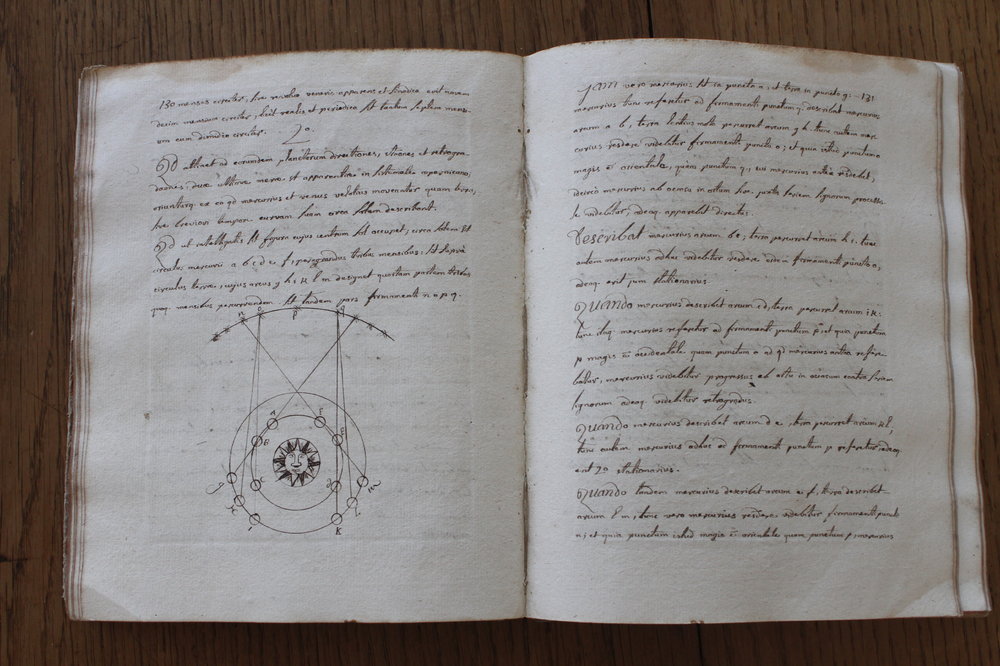 130 menses circiter, sive revolutio veneris apparens et sinodica erit novem
decim mensium circiter, licet realis et periodica sit tantum septem mensi-
um cum dimidio circiter.
2o.
Qd attinet ad eorumdem planetarum directiones, stationes et retrogra-
dationes, duæ ultimæ meræ st apparentiæ in sistemate copernicano,
oriunturq. ex eo qd mercurius et venus velocius moventur quam terra,
sive breviori tempore curvam suam circa solem describant.
Qd ut intelligatis sit figura cujus centrum sol occupet; circa solem sit
circulus mercurii a b c d e f, peragrandus tribus mensibus; sit supra
circulus terræ, cujus arcus g h i k l m designet quartam partem tribus
quoq. mensibus percurrendam. sit tandem pars firmamenti n o p q.
n o P q
A F
B E
C d
g m
H L
i K
131
jam vero mercurius sit in puncto a, et terra in puncto g.
mercurius tunc refertur ad firmamenti punctum q. describat mercurius
arcum a b, terra lentius mota percurret arcum g h. tunc autem mer-
curius respondere videbitur firmamenti puncto o; et quia istud punctum o
magis est orientale, quam punctum q, cui mercurius antea respondebat,
idcirco mercurius ab occasu in ortum sive juxta seriem signorum processis-
se videbitur, adeoq. apparebit directus.
Describat mercurius arcum b c, terra percurret arcum h i, tunc
autem mercurius adhuc videbitur respondere eidem firmamenti puncto o,
adeoq. erit jam stationarius.
Quando mercurius describet arcum c d, terra percurret arcum i k:
tunc itaq. mercurius refertur ad firmamenti punctum p, et quia punctum
p magis est occidentale quam punctum o ad qd mercurius antea refere-
batur, mercurius videbitur progressus ab ortu in occasum contra seriem
signorum adeoq. videbitur retrogradus.
Quando mercurius describet arcum d e, terra percurret arcum k l,
tunc autem mercurius adhuc ad firmamenti punctum p refertur ideoq.
erit 2o stationarius.
Quando tandem mercurius describet arcum e f, terra describet
arcum l m, tunc vero mercurius respondere videbitur firmamenti puncto
n; et quia punctum istud magis est orientale quam punctum p, mercurius